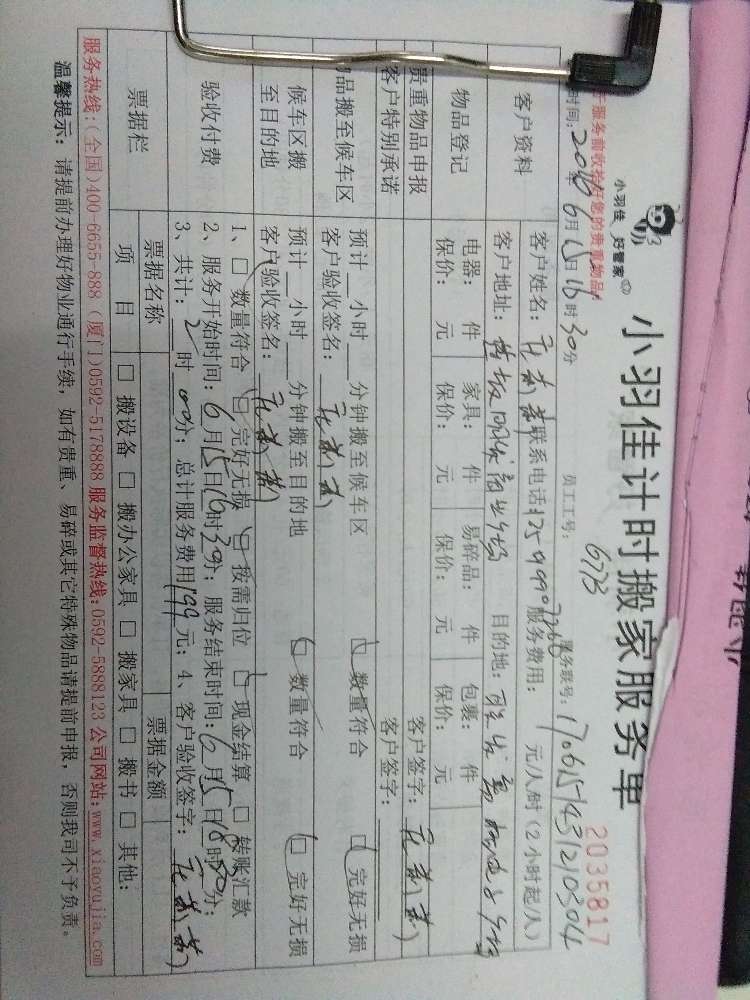 小羽佳 好管家
小羽佳计时搬家服务单
2035817
服务前收拾好您的贵重物品!
时间: 2016年6月15日16时30分 员工工号: 6773 服务联号: 170615143121030
客户资料
客户姓名: 联系电话: 服务费用: 元/人/时(2小时起/人)
客户地址: 目的地:
物品登记
电器: 件 家具: 件 易碎品: 件 包裹: 件
保价: 元 保价: 元 保价: 元 保价: 元
贵重物品申报 客户签字:
客户特别承诺 客户签字:
品搬至候车区
预计__小时__分钟搬至候车区 □ 数量符合 □ 完好无损
客户验收签名:
候车区搬至目的地
预计__小时__分钟搬至目的地 □ 数量符合 □ 完好无损
客户验收签名:
验收付费
1、□ 数量符合 □ 完好无损 □ 按需归位 □ 现金结算 □ 转账汇款
2、服务开始时间: 6月15日16时30分; 服务结束时间: 6月15日18时30分;
3、共计: 2时00分; 总计服务费用199元; 4、客户验收签字:
票据栏
票据名称 票据金额
项 目 □ 搬设备 □ 搬办公家具 □ 搬家具 □ 搬书 □ 其他:
服务热线:(全国)400-6655-888 (厦门)0592-5178888 服务监督热线:0592-5888123 公司网站:www.xiaoyujia.com
温馨提示: 请提前办理好物业通行手续, 如有贵重、易碎或其它特殊物品请提前申报, 否则我司不予负责。